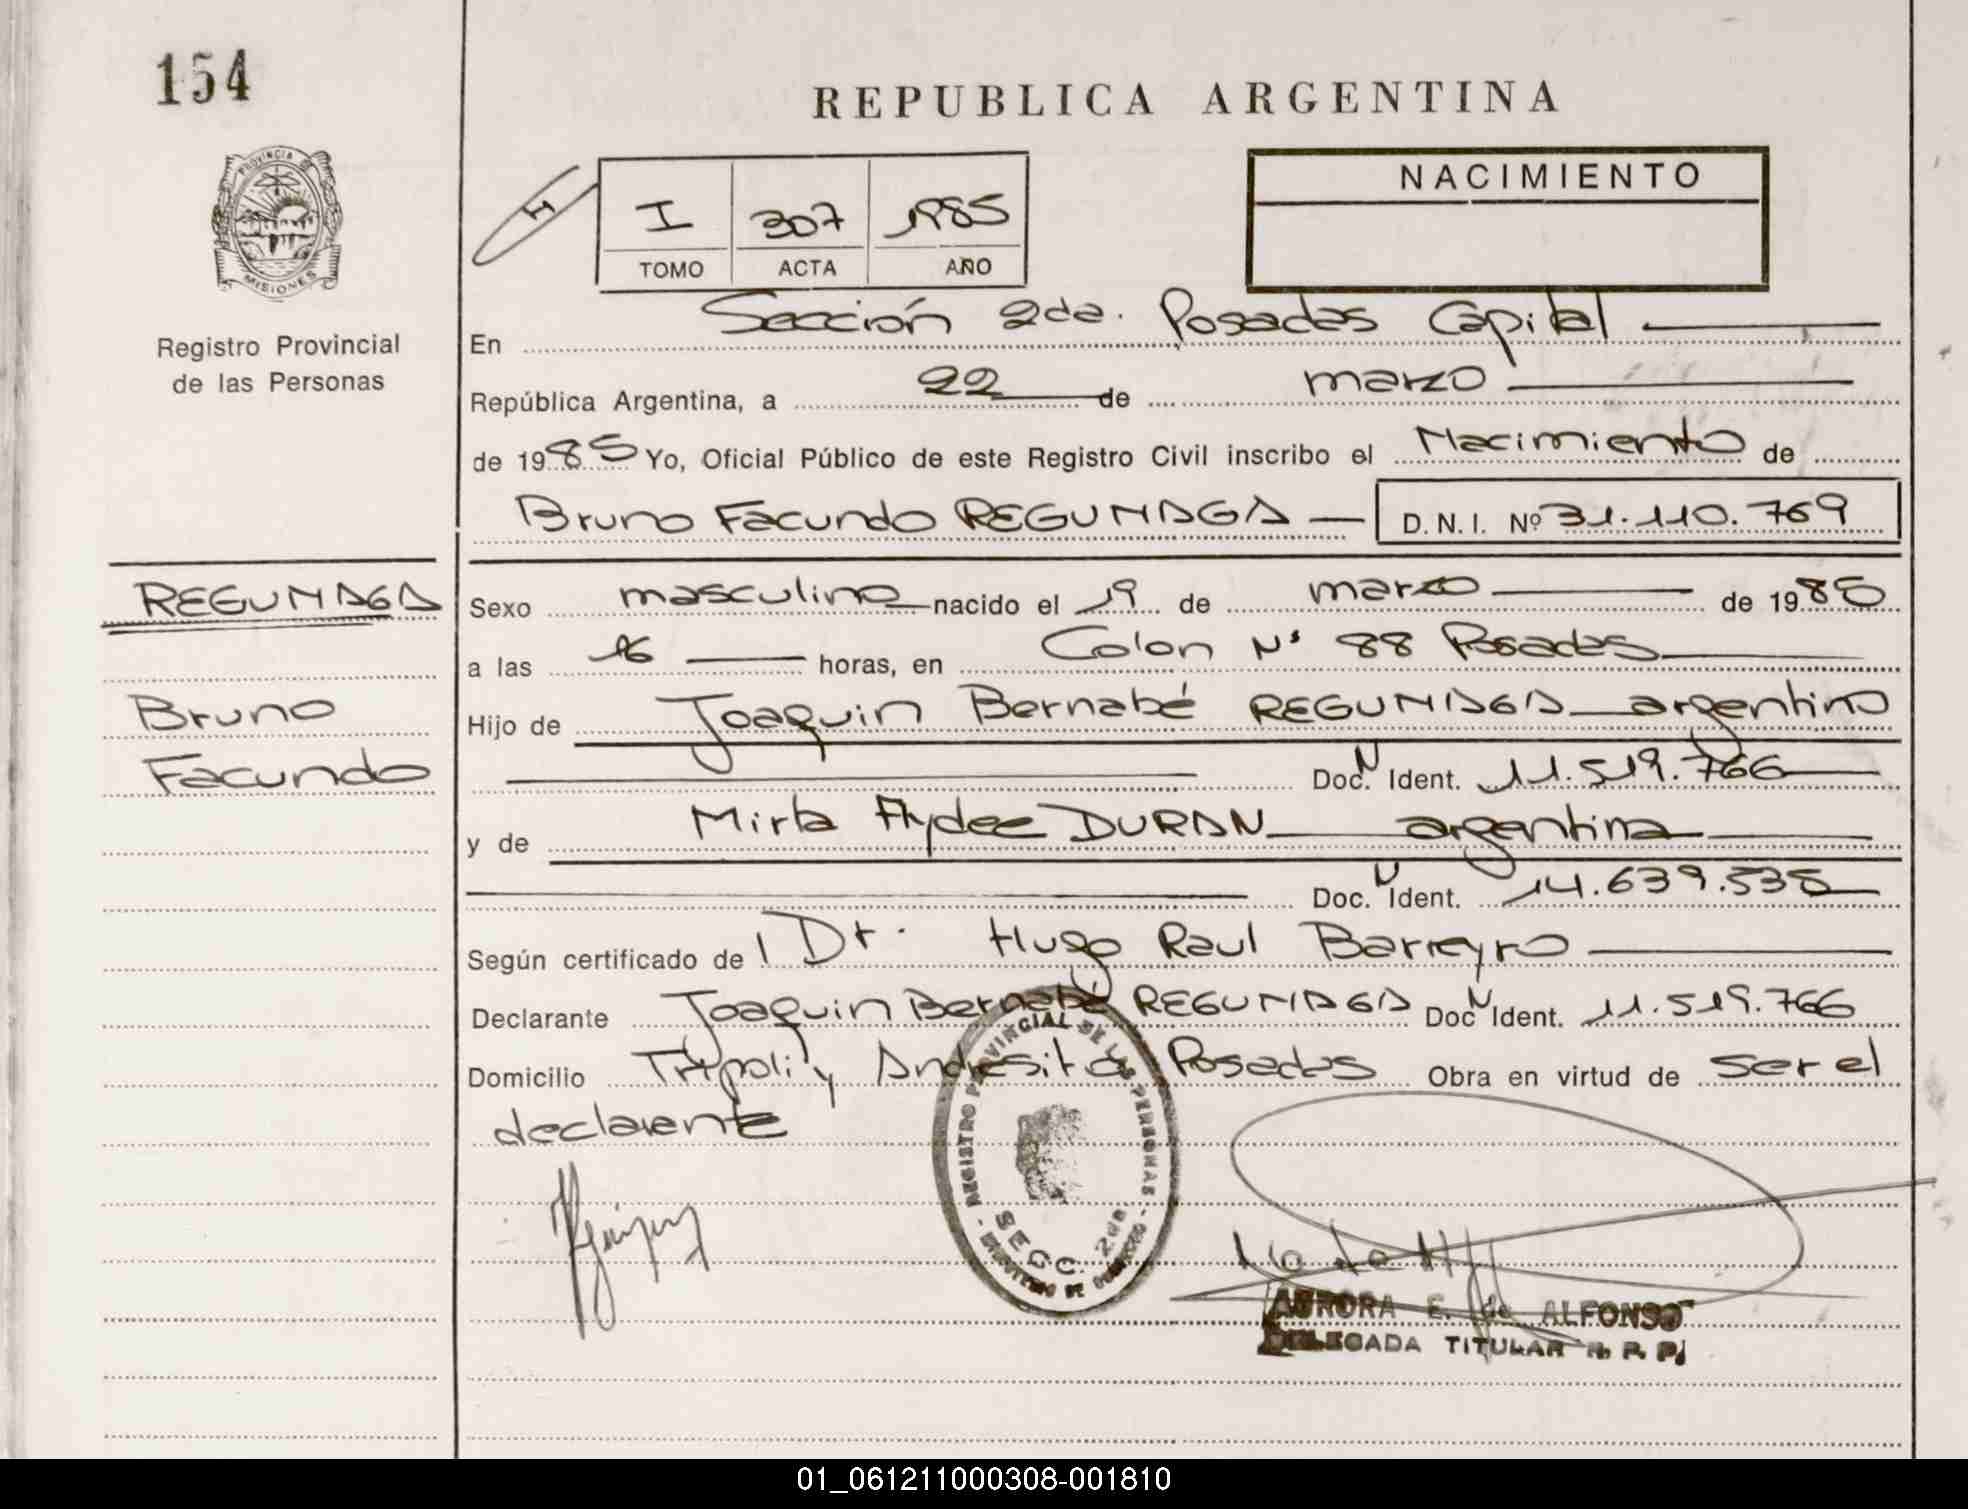 154
REPUBLICA ARGENTINA
PROVINCIA DE
MISIONES
Registro Provincial
de las Personas
H
I 307 1985
TOMO ACTA AÑO
NACIMIENTO
En Sección 2da. Posadas Capital
República Argentina, a 22 de marzo
de 1985 Yo, Oficial Público de este Registro Civil inscribo el Nacimiento de
Bruno Facundo REGUNAGA D.N.I. Nº 31.110.769
REGUNAGA
Bruno
Facundo
Sexo masculino nacido el 19 de marzo de 1985
a las 16 horas, en Colon Nº 88 Posadas
Hijo de Joaquin Bernabé REGUNAGA argentino
Doc. N Ident. 11.519.766
y de Mirta Aydee DURAN argentina
Doc. N Ident. 14.639.535
Según certificado de Dr. Hugo Raul Barreyro
Declarante Joaquin Bernabé REGUNAGA Doc N Ident. 11.519.766
Domicilio Tripoli y Andresito Posadas Obra en virtud de ser el
declarante
REGISTRO PROVINCIAL DE LAS PERSONAS
SECC. 2da
MINISTERIO DE GOBIERNO
AURORA E. de ALFONSO
DELEGADA TITULAR R. P. P.
01_061211000308-001810